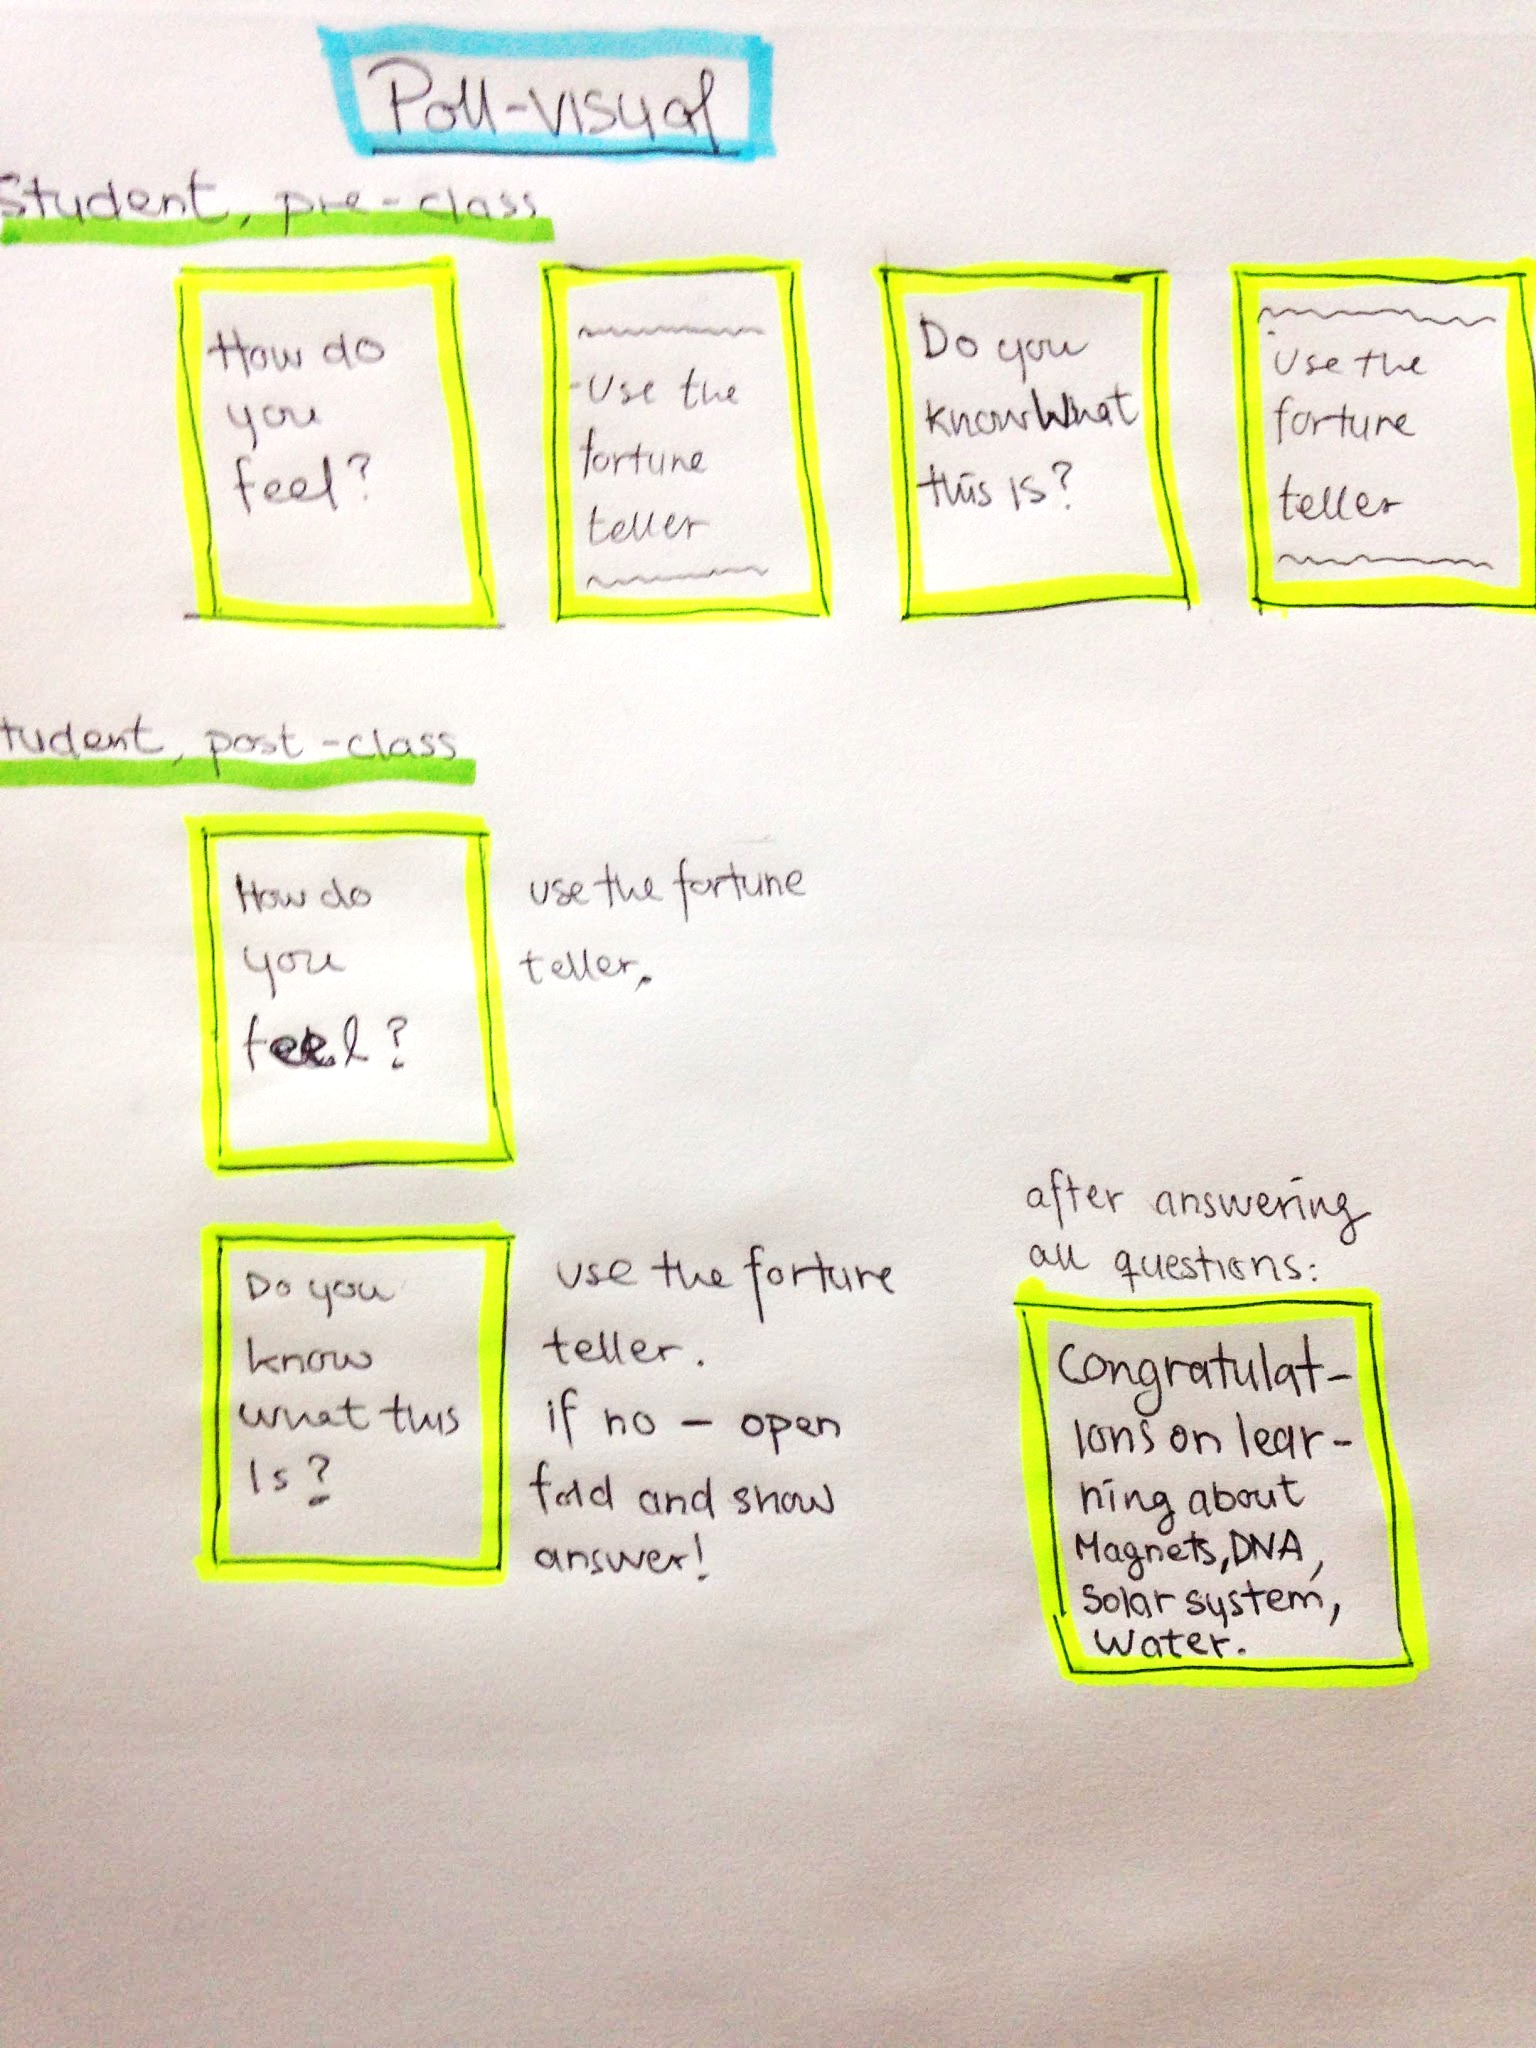 Poll-visual
Student, pre-class
How do
you
feel?
-Use the
fortune
teller
Do you
know What
this is?
Use the
fortune
teller
tudent, post-class
How do
you
feel?
use the fortune
teller.
Do you
know
what this
is?
use the forture
teller.
if no - open
fold and show
answer!
after answering
all questions:
Congratulat-
ions on lear-
ning about
Magnets, DNA,
Solar system,
Water.